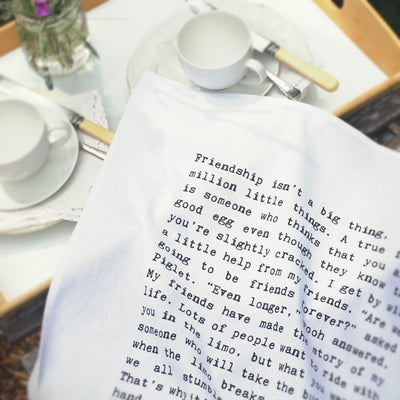 Friendship isn't a big thing,
million little things. A true f
is someone who thinks that you a
good egg even though they know t
you're slightly cracked. I get by wi
a little help from my friends. "Are we
going to be friends forever?" asked
Piglet. "Even longer," Pooh answered.
My friends have made the story of my
life. Lots of people want to ride with
you in the limo, but what you wan
someone who will take the bu
when the limo breaks
we all stumbl
That's why it
hand